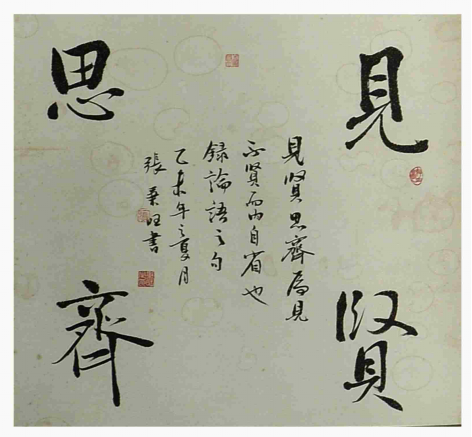 見賢
思齊
見賢思齊焉見
不賢而內自省也
錄論語之句
乙未年之夏月
張秉旺書